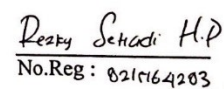 Rezky Setiadi H.P
No.Reg : 8215164203